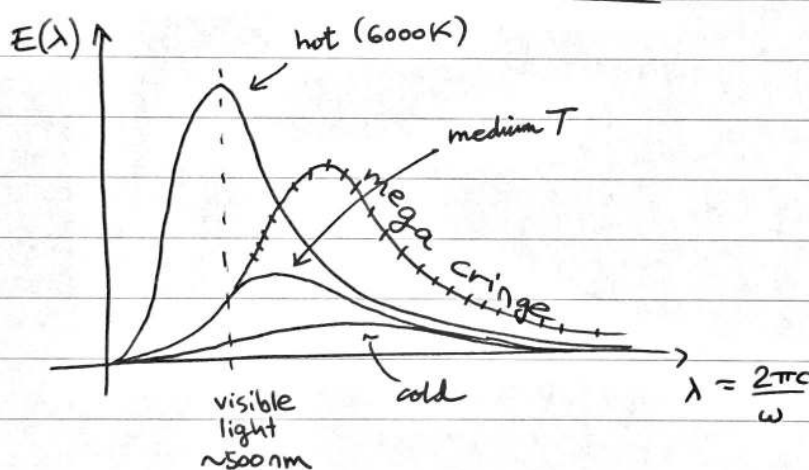 E(λ)
hot (6000K)
medium T
mega cringe
cold
λ = 2πc/ω
visible
light
~500nm